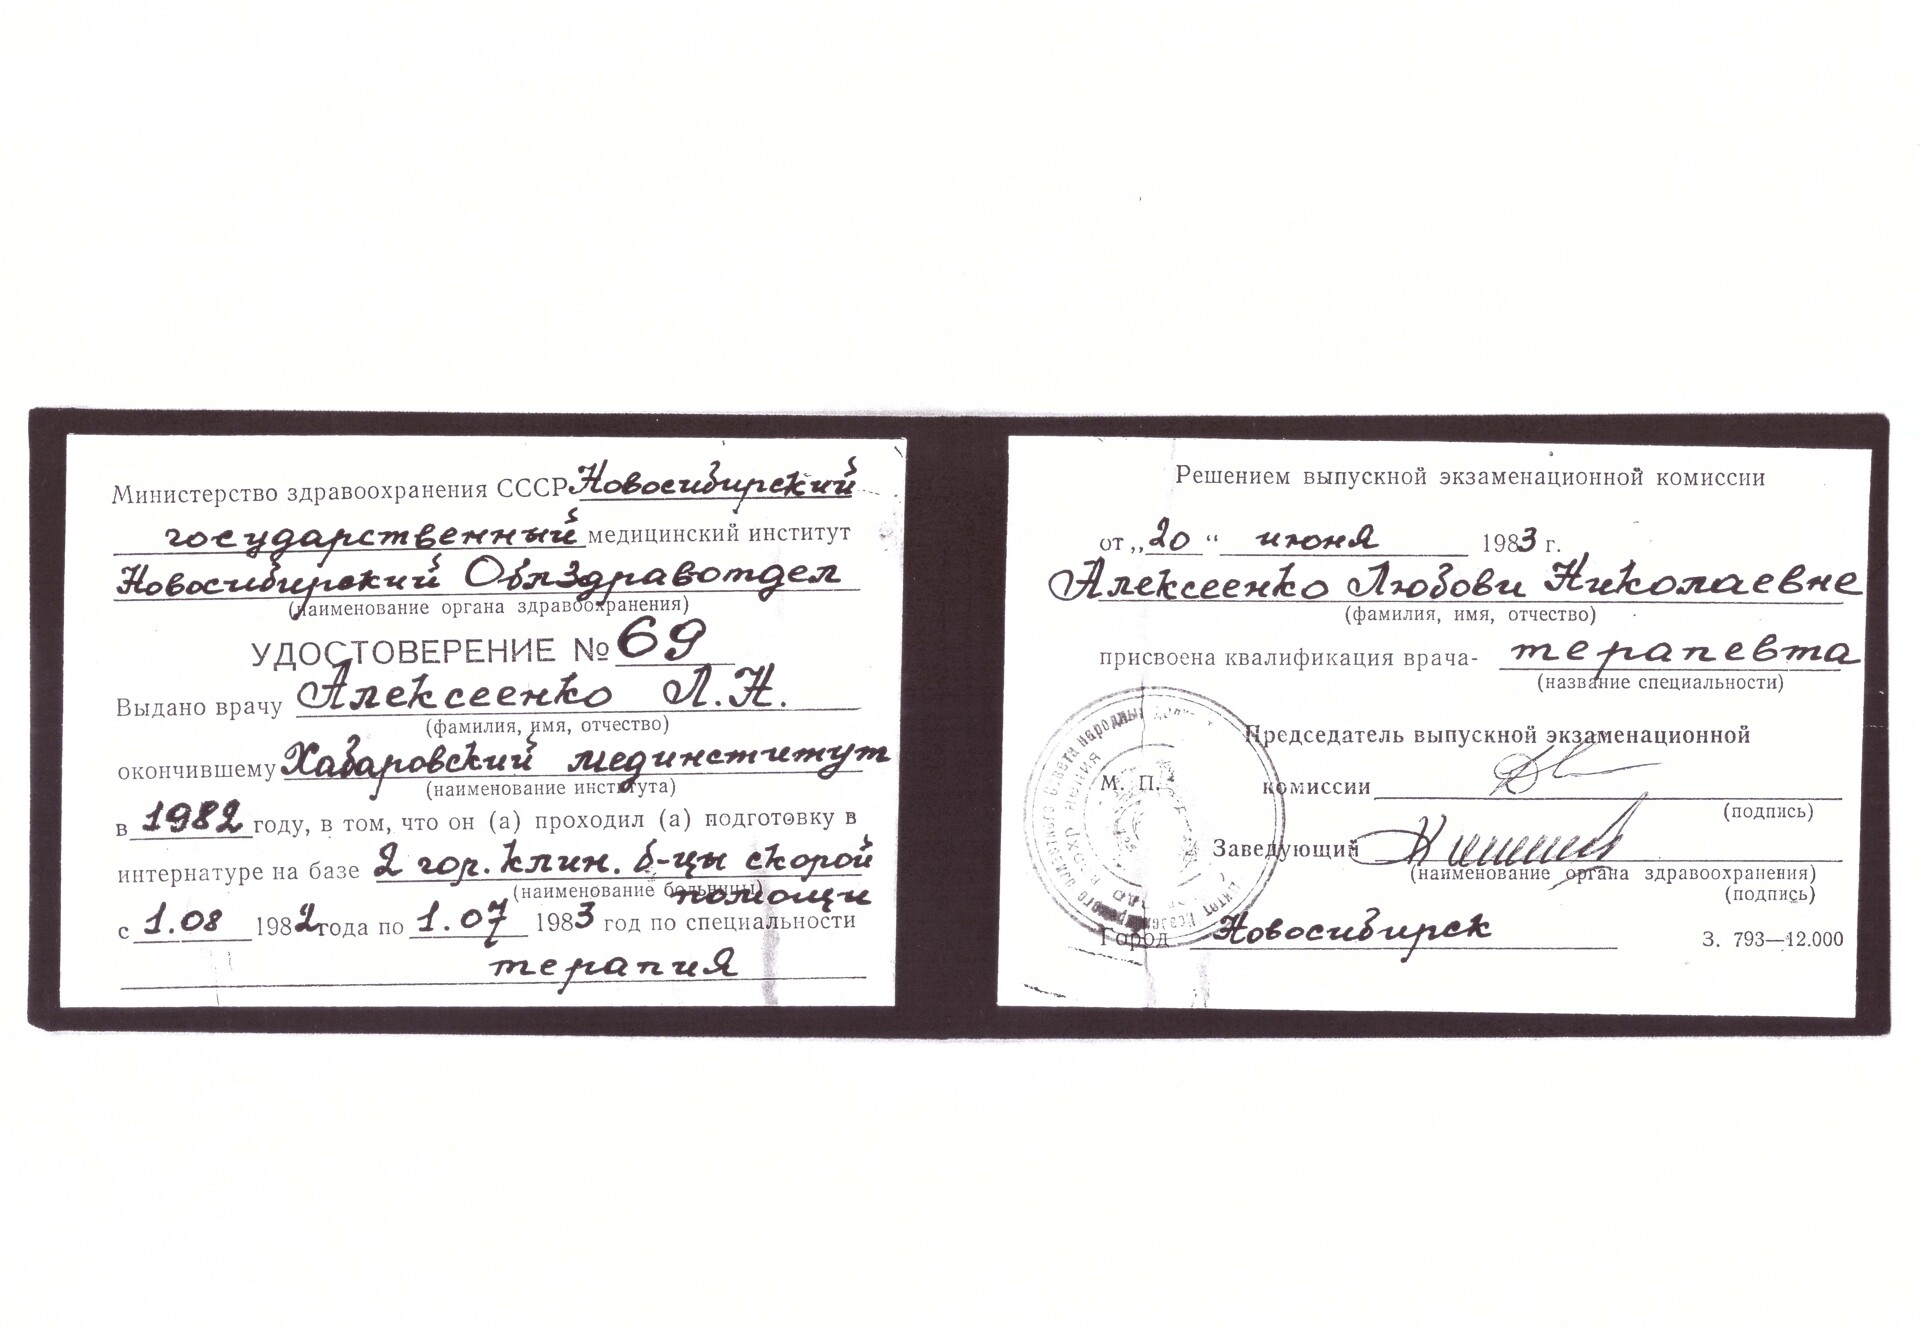 Министерство здравоохранения СССР Новосибирский
государственный медицинский институт
Новосибирский Облздравотдел
(наименование органа здравоохранения)
УДОСТОВЕРЕНИЕ № 69
Выдано врачу Алексеенко Л.Н.
(фамилия, имя, отчество)
окончившему Хабаровский мединститут
(наименование института)
в 1982 году, в том, что он (а) проходил (а) подготовку в
интернатуре на базе 2 гор. клин. б-цы скорой
(наименование больницы) помощи
с 1.08 1982 года по 1.07 1983 год по специальности
терапия
Решением выпускной экзаменационной комиссии
от „20“ июня 1983 г.
Алексеенко Любови Николаевне
(фамилия, имя, отчество)
присвоена квалификация врача- терапевта
(название специальности)
Председатель выпускной экзаменационной
М. П. комиссии
(подпись)
Заведующий
(наименование органа здравоохранения)
(подпись)
Город Новосибирск З. 793—12.000